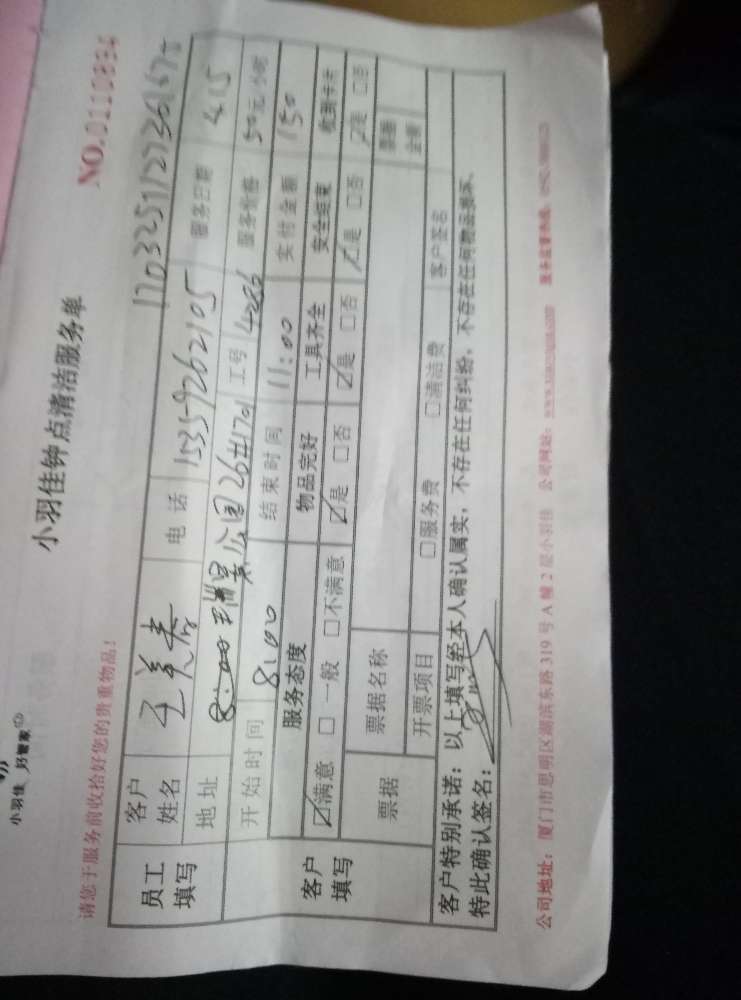 小羽佳 好管家
小羽佳钟点清洁服务单
NO.0110834
请您于服务前收拾好您的贵重物品！
170325112723616
员工填写 客户姓名 电话 15359262105 服务日期 4.15
地址 瑞景公园26#1701 工号 4086 服务价格 50元/小时
开始时间 8:00 结束时间 11:00 实付金额 150
客户填写 服务态度 物品完好 工具齐全 安全结束
☑满意 □一般 □不满意 ☑是 □否 ☑是 □否 ☑是 □否 ☑是 □否
票据 票据名称 票据金额
开票项目 □服务费 □清洁费 客户签名
客户特别承诺：以上填写经本人确认属实，不存在任何纠纷，不存在任何物品损坏。
特此确认签名：
公司地址：厦门市思明区湖滨东路319号A幢2层小羽佳 公司网站： 服务监督热线：